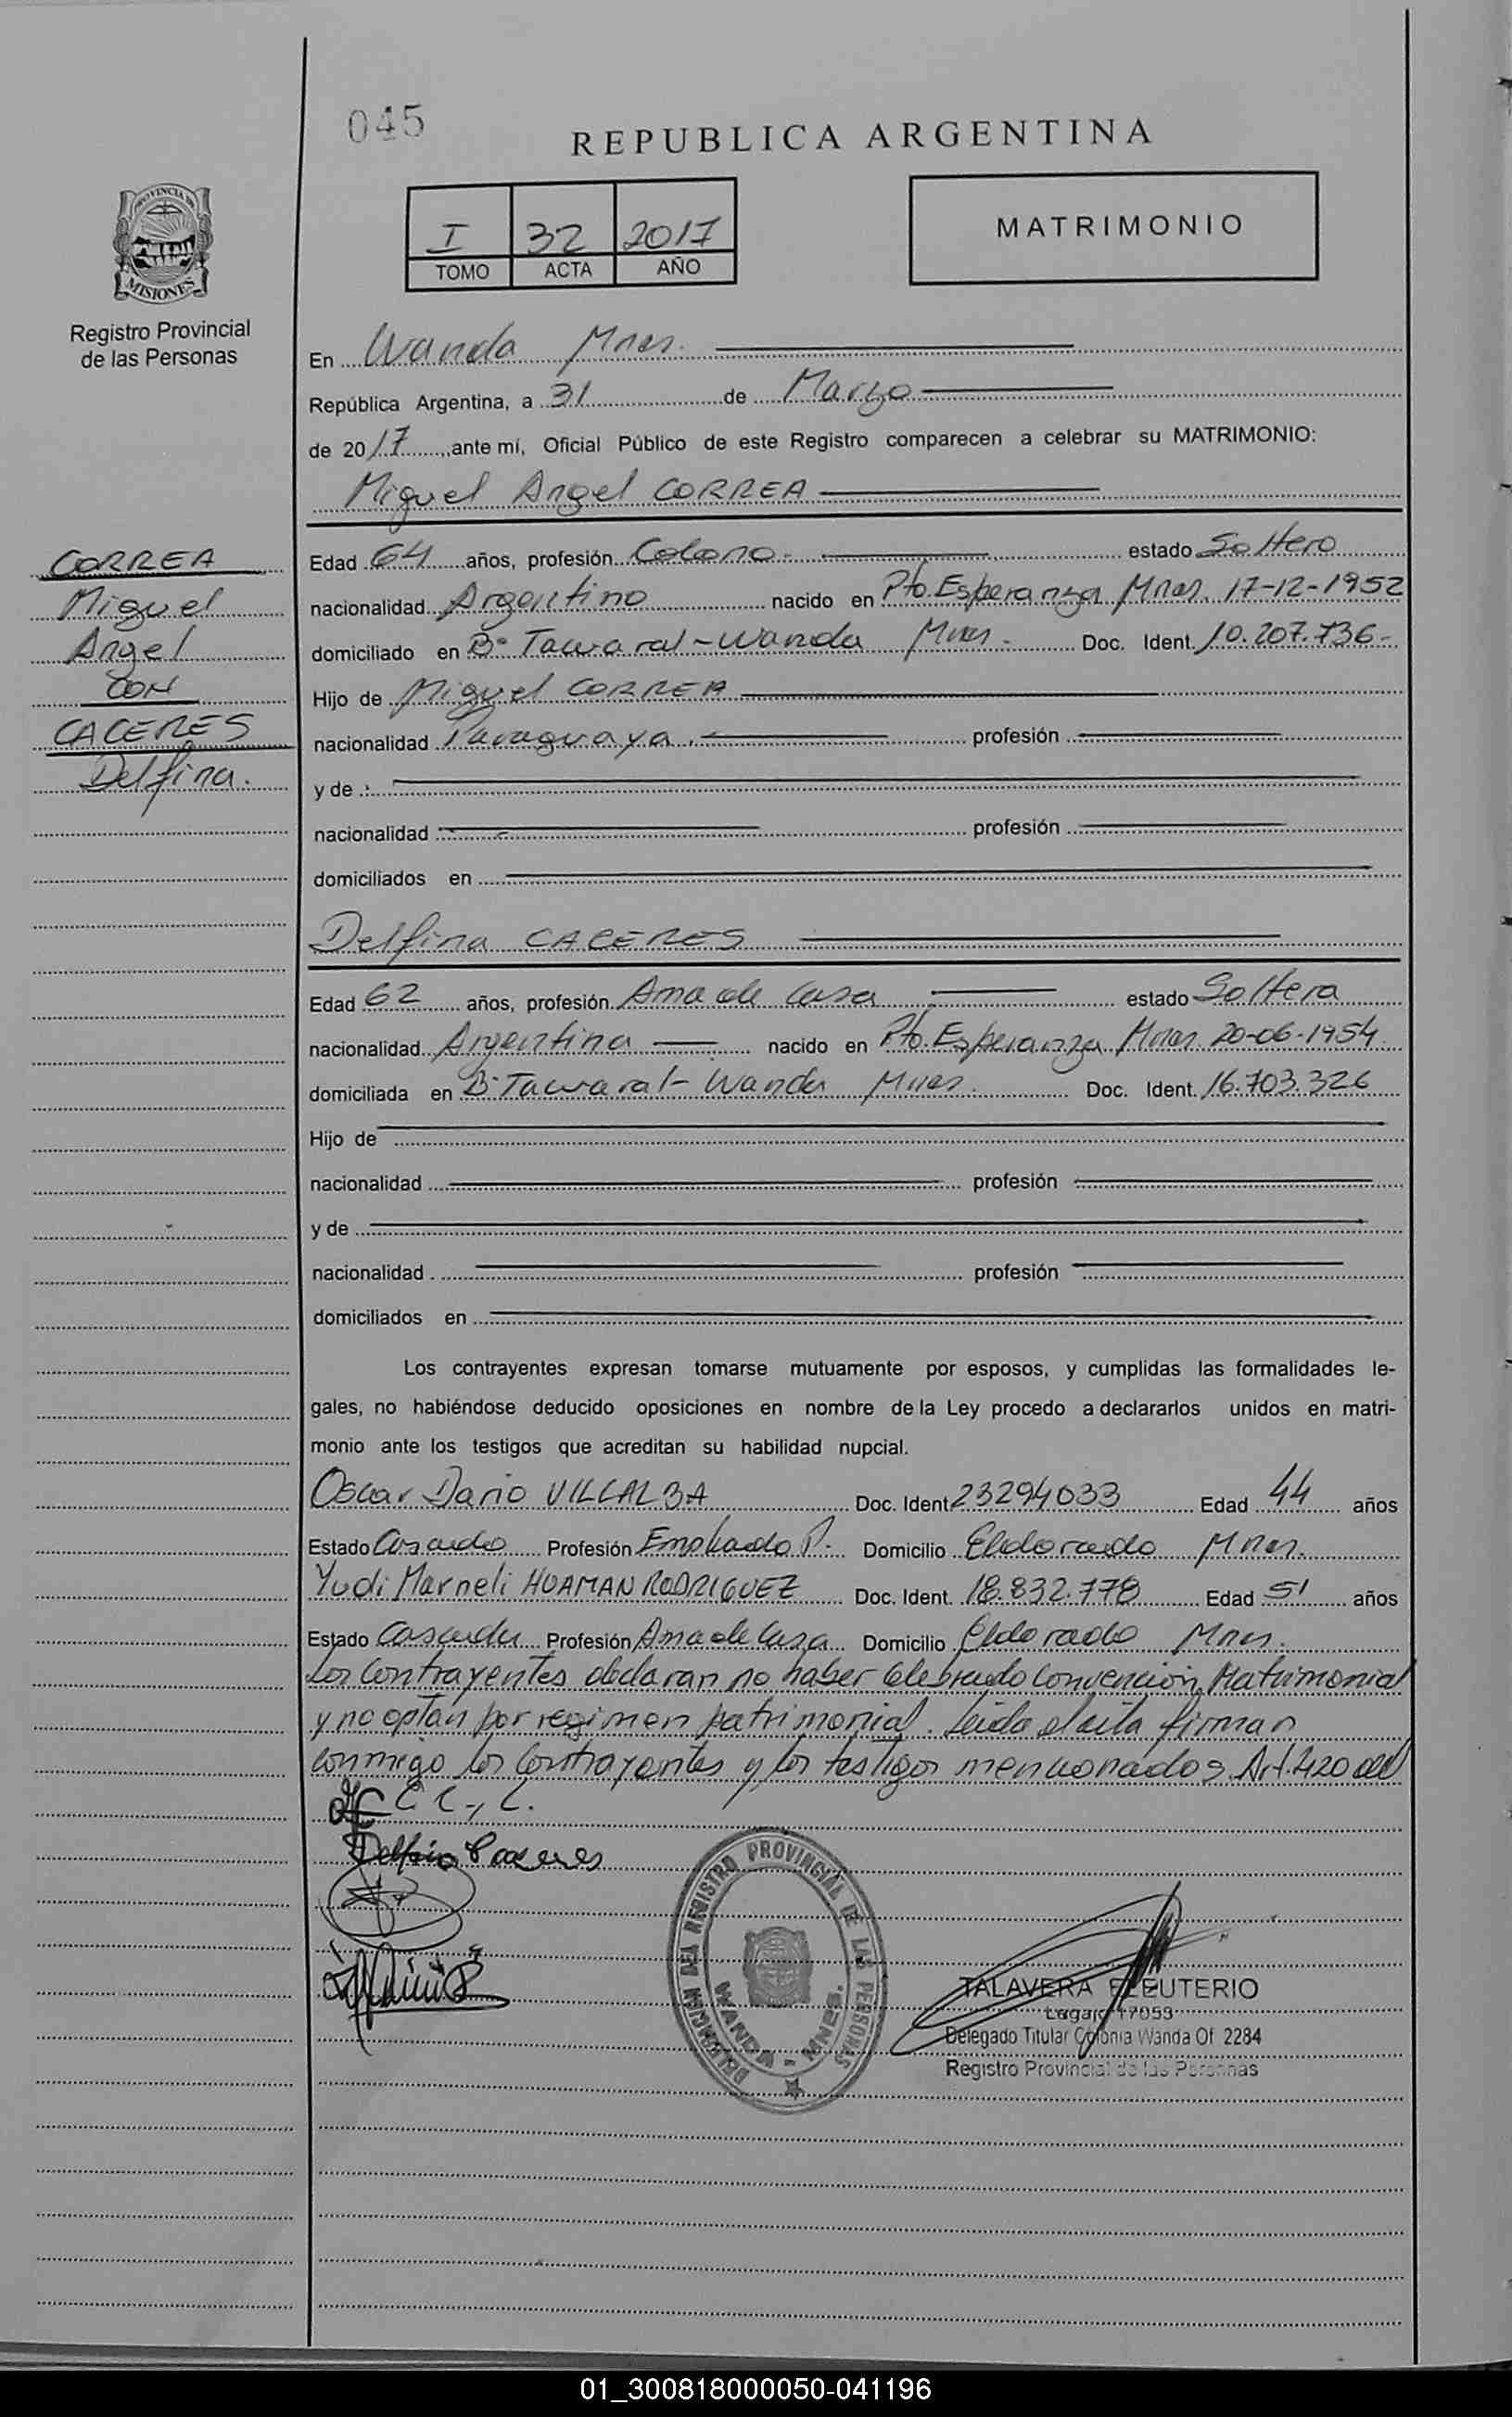 045
REPUBLICA ARGENTINA
PROVINCIA DE
MISIONES
Registro Provincial
de las Personas
I 32 2017
TOMO ACTA AÑO
MATRIMONIO
En Wanda Mnes.
República Argentina, a 31 de Marzo
de 2017, ante mí, Oficial Público de este Registro comparecen a celebrar su MATRIMONIO:
Miguel Angel CORREA
CORREA
Miguel
Angel
CON
CACERES
Delfina.
Edad 64 años, profesión Colono- estado Soltero
nacionalidad Argentino nacido en Pto. Esperanza Mnes. 17-12-1952
domiciliado en B° Tawaral-Wanda Mnes- Doc. Ident. 10.207.736-
Hijo de Miguel CORREA
nacionalidad Paraguaya. profesión
y de :
nacionalidad profesión
domiciliados en
Delfina CACERES
Edad 62 años, profesión Ama de Casa estado Soltera
nacionalidad Argentina nacido en Pto. Esperanza Mnes 20-06-1954
domiciliada en B° Tawaral- Wanda Mnes. Doc. Ident. 16.703.326
Hijo de
nacionalidad profesión
y de
nacionalidad profesión
domiciliados en
Los contrayentes expresan tomarse mutuamente por esposos, y cumplidas las formalidades le-
gales, no habiéndose deducido oposiciones en nombre de la Ley procedo a declararlos unidos en matri-
monio ante los testigos que acreditan su habilidad nupcial.
Oscar Dario VILLALBA Doc. Ident 23294033 Edad 44 años
Estado Casado Profesión Empleado P. Domicilio Eldorado Mnes.
Yudi Marneli HUAMAN RODRIGUEZ Doc. Ident. 18.832.778 Edad 51 años
Estado Casada Profesión Ama de Casa Domicilio Eldorado Mnes.
Los Contrayentes declaran no haber Celebrado Convención Matrimonial
y no optan por regimen patrimonial. Leida el acta firman
conmigo los Contrayentes y los testigos mencionados. Art. 420 del
C C., C.
Delfina Caceres
DELEGACION DEL REGISTRO PROVINCIAL DE LAS PERSONAS
WANDA - MNES.
TALAVERA ELEUTERIO
Legajo 17053
Delegado Titular Colonia Wanda Of. 2284
Registro Provincial de las Personas
01_300818000050-041196